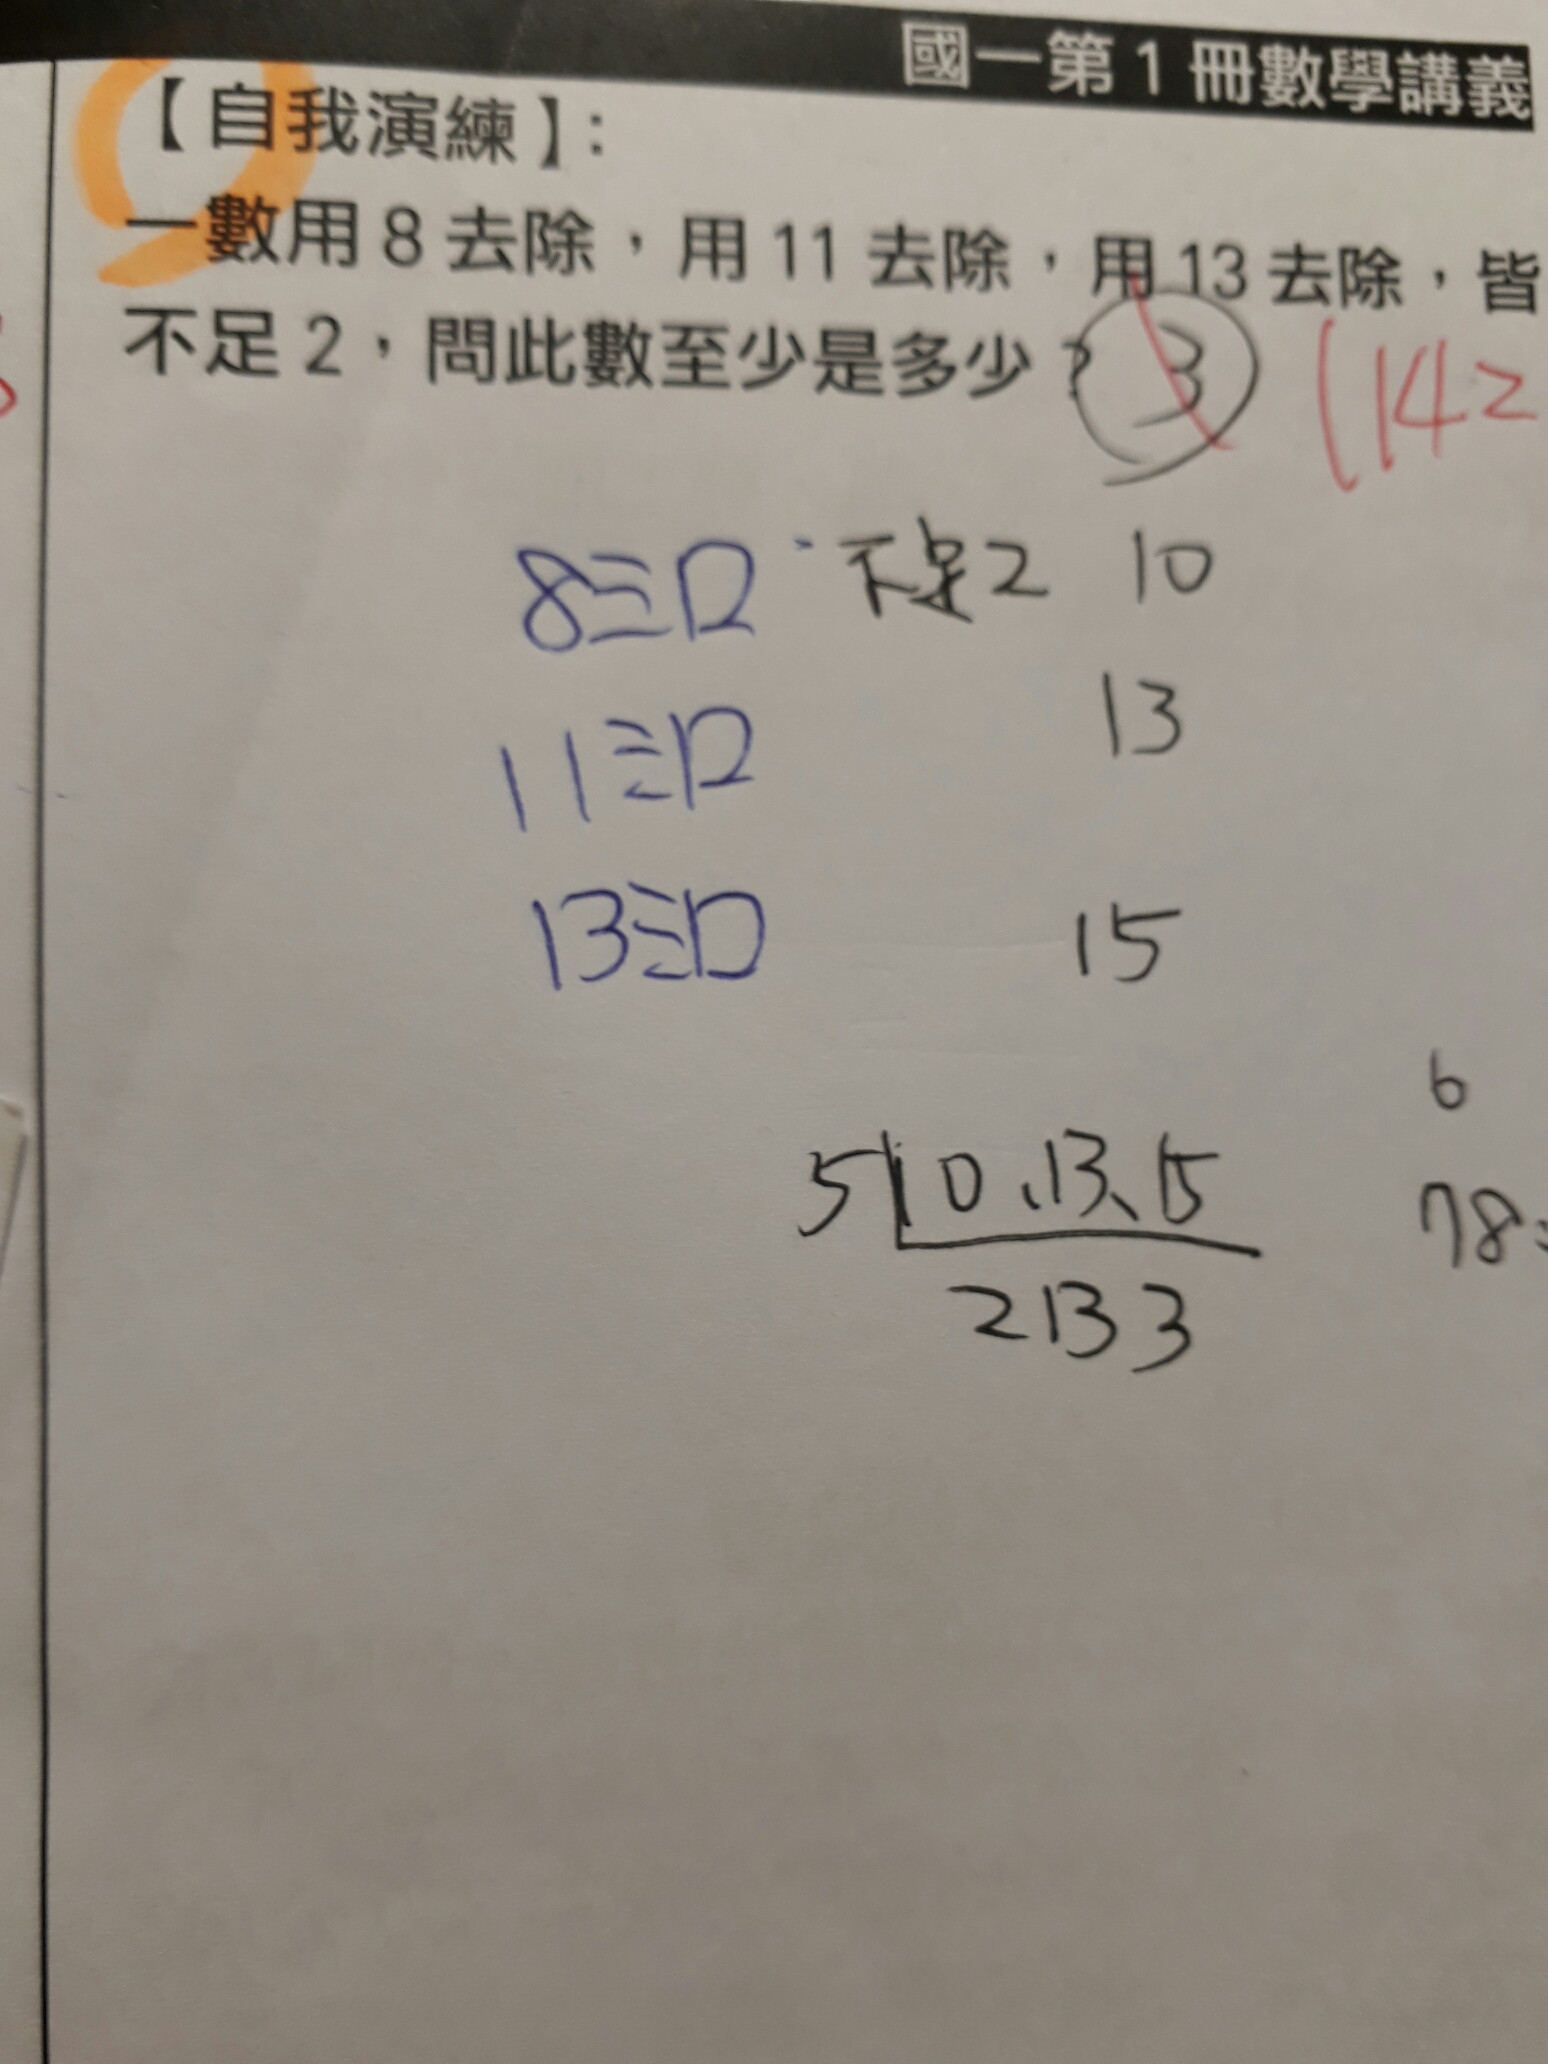 國一第1冊數學講義
【自我演練】：
一數用8去除，用11去除，用13去除，皆
不足2，問此數至少是多少？ 3 (1142
8 不足2 10
11 13
13 15
6
5 10、13、15 78
2 13 3